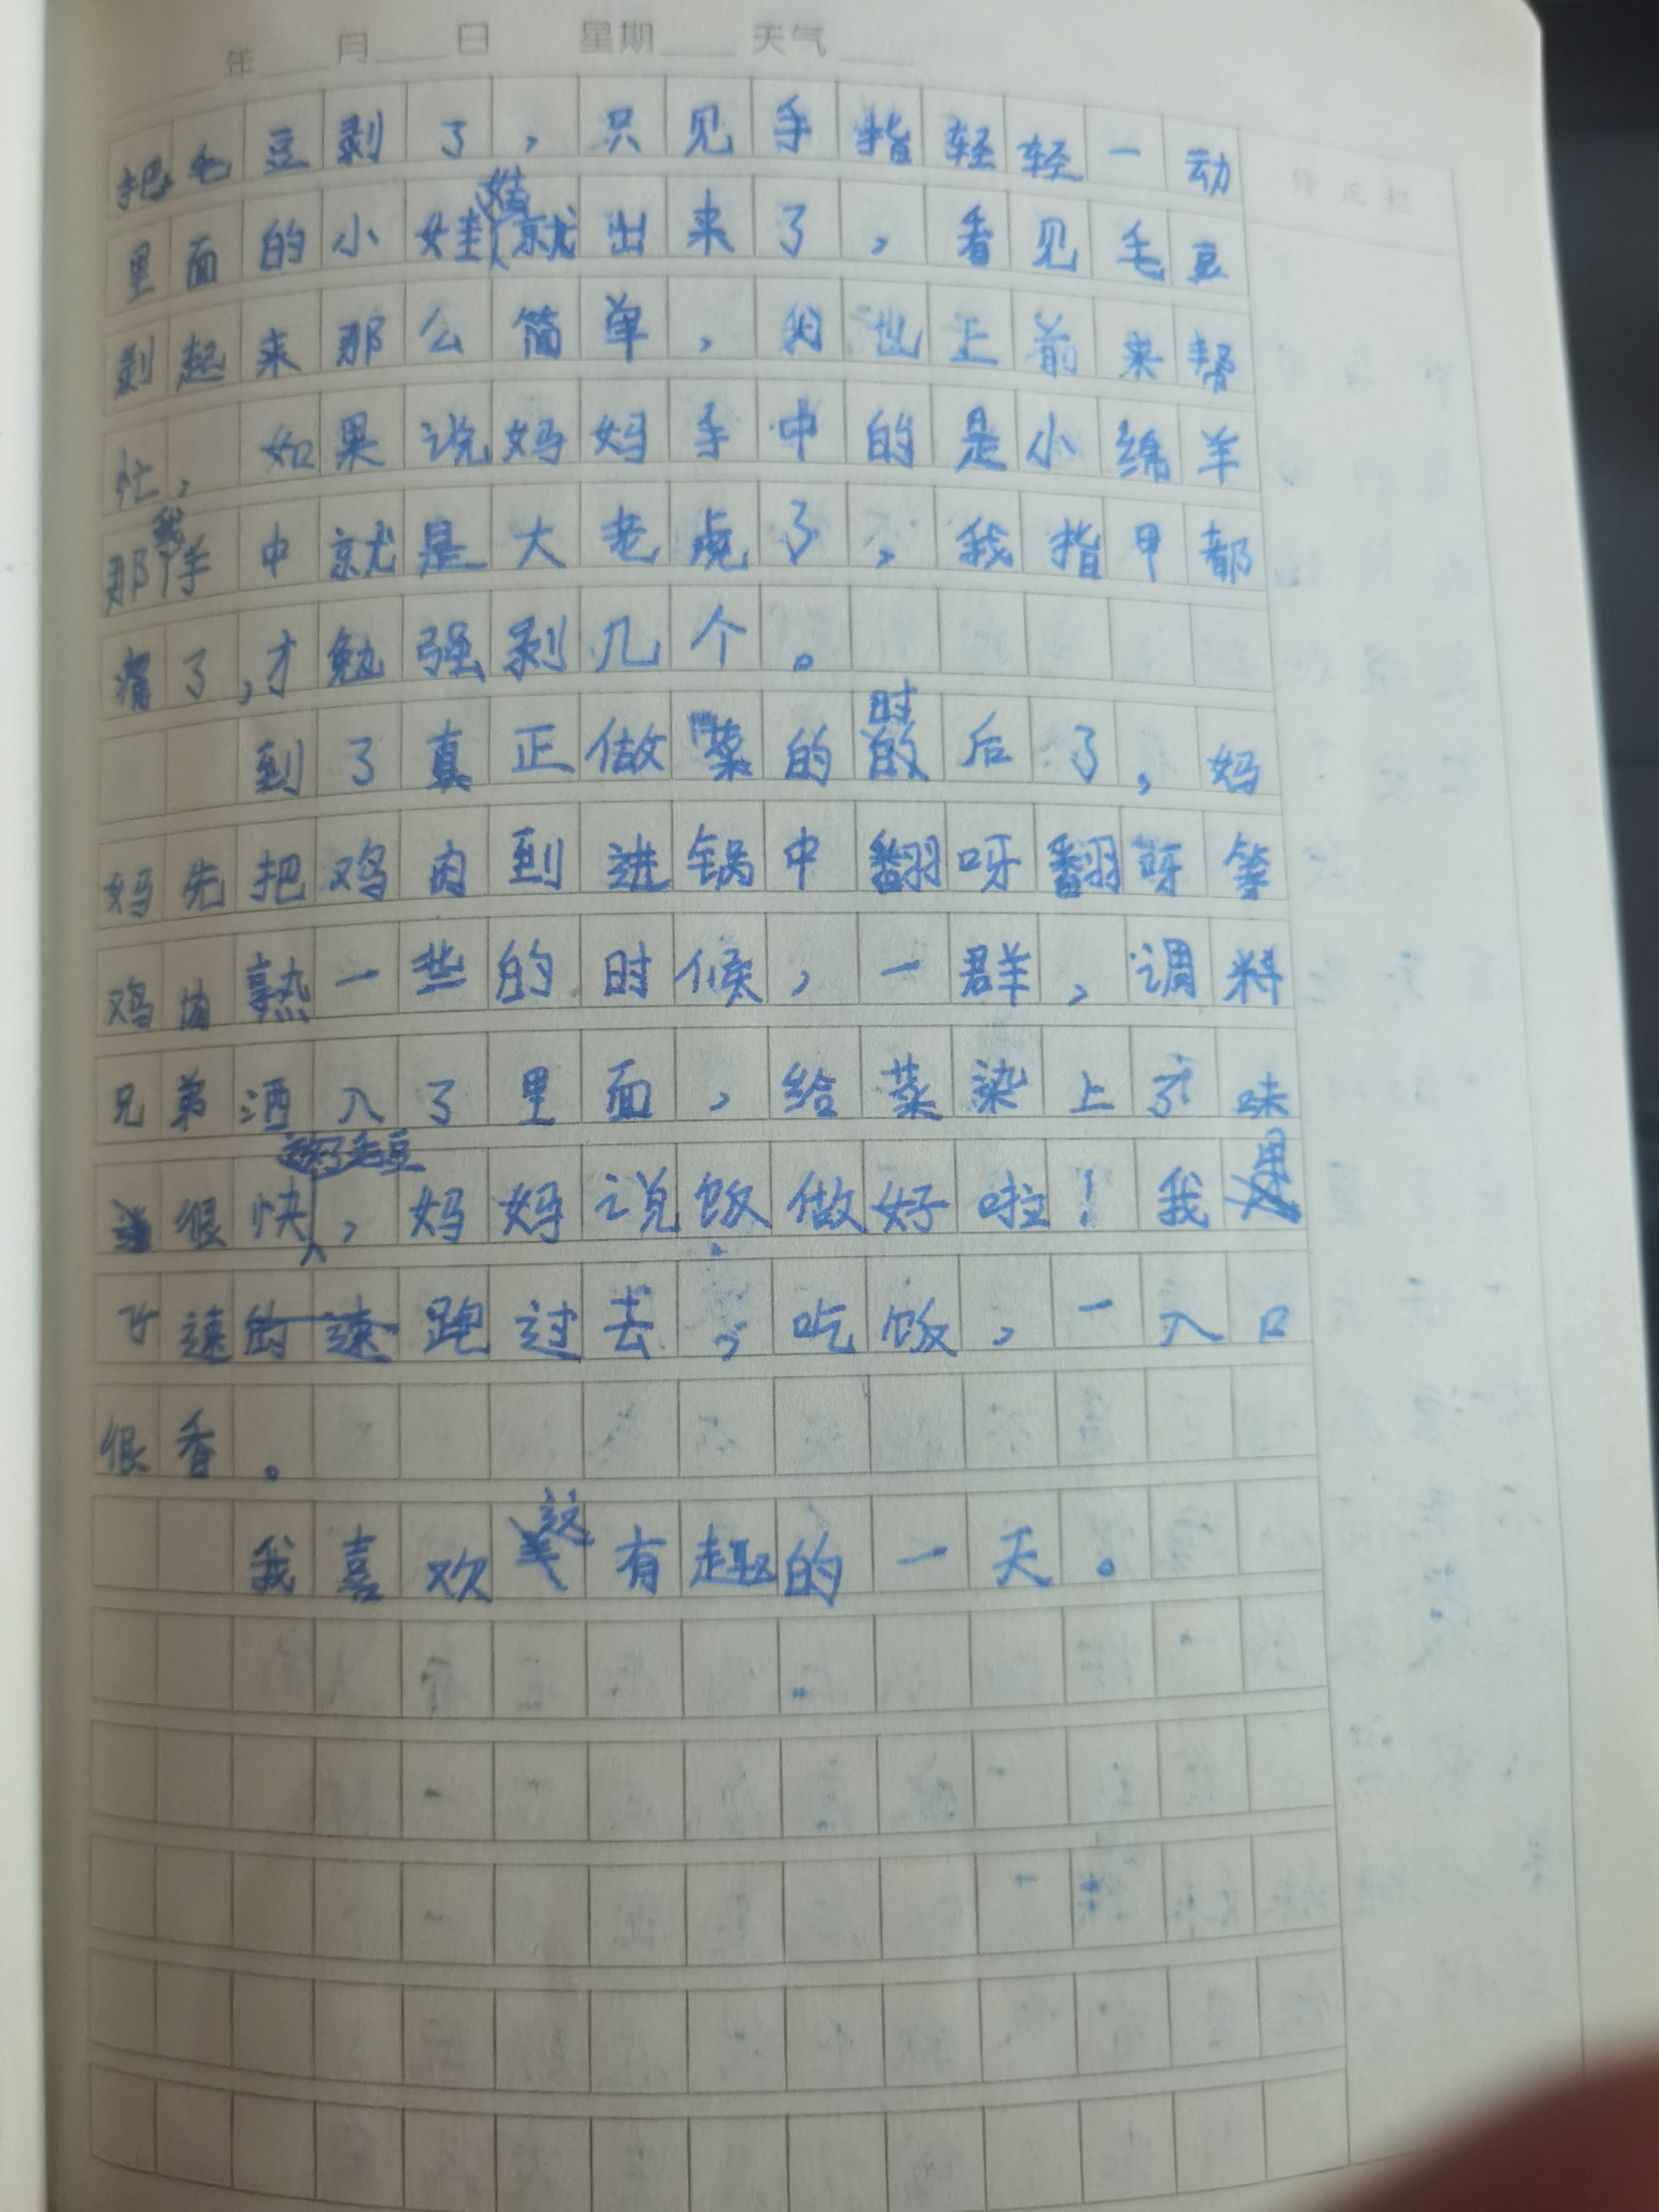 年 月 日 星期 天气
修正栏
把毛豆剥了,只见手指轻轻一动
里面的小娃娃就出来了,看见毛豆
剥起来那么简单,我也上前来帮
忙,如果说妈妈手中的是小绵羊
那我手中就是大老虎了,我指甲都
痛了,才勉强剥几个。
到了真正做菜的时后了,妈
妈先把鸡肉到进锅中翻呀翻呀等
鸡肉熟一些的时候,一群,调料
兄弟洒入了里面,给菜染上了味
道很快,妈妈说饭做好啦!我用
飞速的速跑过去,吃饭,一入口
很香。
我喜欢这有趣的一天。